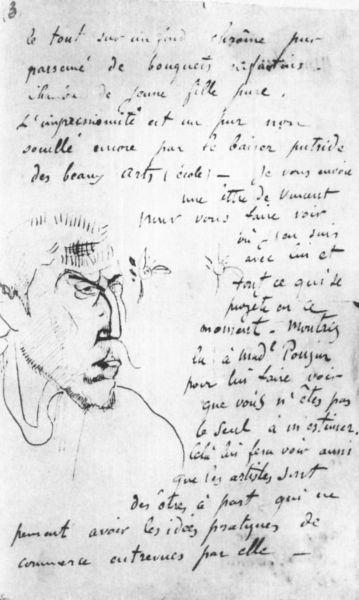 3
le tout sur un fond chrôme pur
parsemé de bouquets enfantins.
Chambre de jeune fille pure.
L'impressioniste est un pur non
souillé encore par le baiser putride
des beaux arts (école) – Je vous envoie
une lettre de Vincent
pour vous faire voir
où j'en suis
avec lui et
tout ce qui se
projète en ce
moment. Montrez
la à Madl
pour lui faire voir
que vous n'êtes pas
le seul à m'estimer.
Celà lui fera voir aussi
que les artistes sont
des êtres à part qui ne
peuvent avoir les idées pratiques de
commerce entrevues par elle –